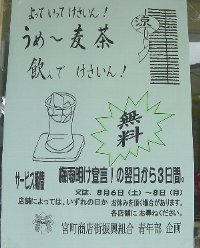 よっていってけさいん!
涼
うめ〜麦茶
飲んで けさいん!
無料
サービス期間
梅雨明け宣言!の翌日から3日間。
又は、8月6日(土)〜8日(月)
店舗によっては、いずれの日か お休みを頂く場合があります。
各店舗に お尋ねください。
宮町商店街振興組合 青年部 企画